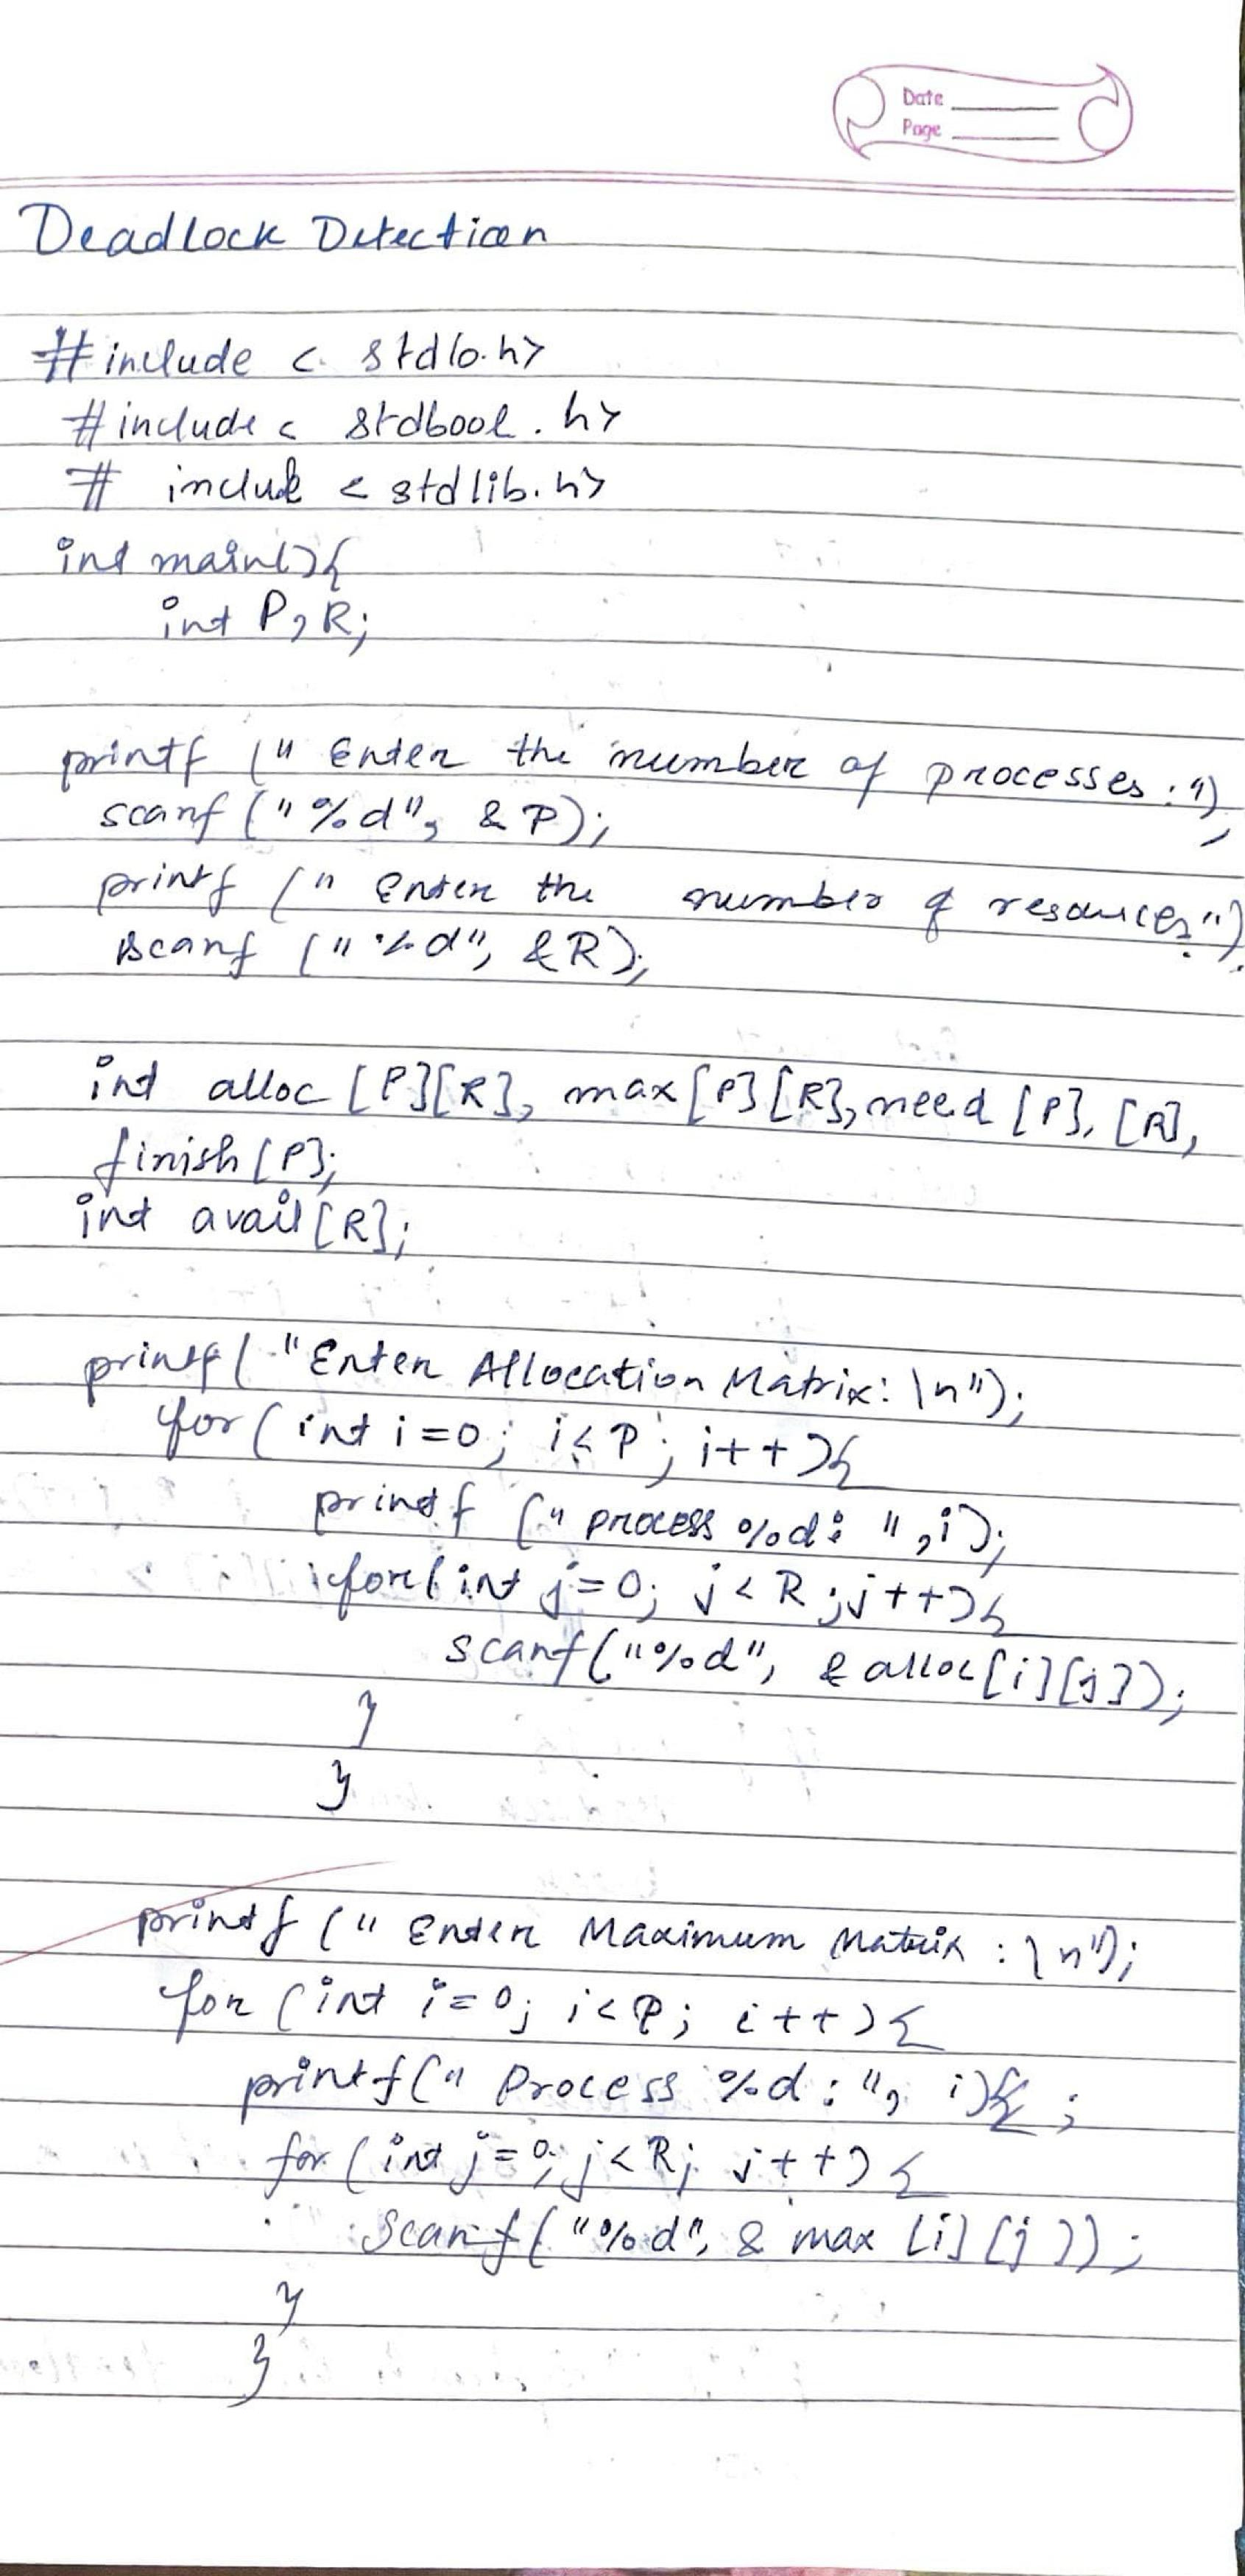 Date
Page
Deadlock Detection
#include < stdio.h>
#include < stdbool.h>
# include < stdlib.h>
int main(){
int P, R;
printf (" Enter the number of processes : ");
scanf (" %d", & P);
printf (" Enter the number of resources: ");
scanf (" %d", &R);
int alloc [P][R], max [P] [R], need [P], [R],
finish [P];
int avail [R];
printf( "Enter Allocation Matrix: \n");
for ( int i=0; i< P; i++){
printf (" process %d: ", i);
for( int j=0; j < R ; j++){
scanf("%d", & alloc [i][j]);
}
}
printf (" Enter Maximum Matrix : \n");
for (int i=0; i<P; i++){
printf(" Process %d : ", i) ;
for (int j=0; j<R; j++) {
scanf( "%d", & max [i] [j ]);
}
}